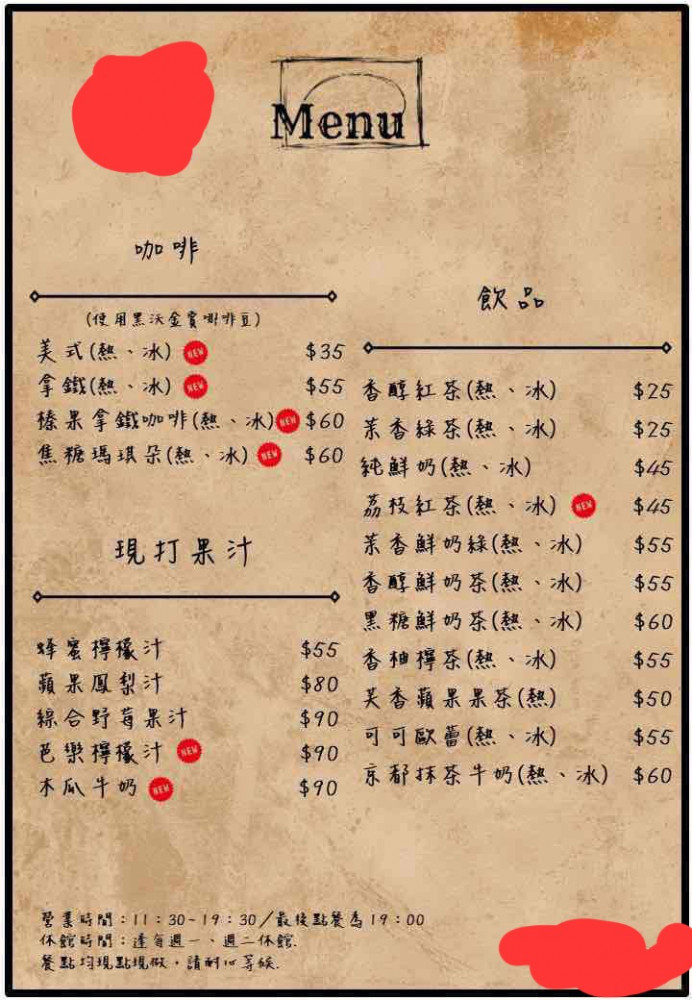 Menu
咖啡
(使用黑沃金賞咖啡豆)
美式(熱、冰) NEW $35
拿鐵(熱、冰) NEW $55
榛果拿鐵咖啡(熱、冰) NEW $60
焦糖瑪琪朵(熱、冰) NEW $60
現打果汁
蜂蜜檸檬汁 $55
蘋果鳳梨汁 $80
綜合野莓果汁 $90
芭樂檸檬汁 NEW $90
木瓜牛奶 NEW $90
飲品
香醇紅茶(熱、冰) $25
茉香綠茶(熱、冰) $25
純鮮奶(熱、冰) $45
荔枝紅茶(熱、冰) NEW $45
茉香鮮奶綠(熱、冰) $55
香醇鮮奶茶(熱、冰) $55
黑糖鮮奶茶(熱、冰) $60
香柚檸茶(熱、冰) $55
芙香蘋果果茶(熱) $50
可可歐蕾(熱、冰) $55
京都抹茶牛奶(熱、冰) $60
營業時間：11：30-19：30/最後點餐為19：00
休館時間：逢每週一、週二休館.
餐點均現點現做，請耐心等候.